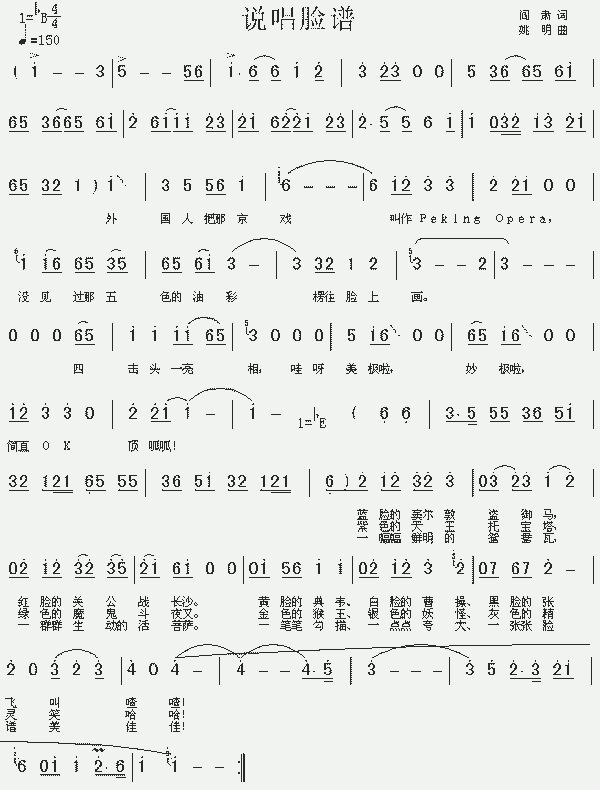 说唱脸谱
1=♭B 4/4
♩=150
阎肃词
姚明曲
( i - - 3 | 5 - - 56 | i· 6 6 i 2 | 3 23 0 0 | 5 36 65 61 |
65 3665 61 | 2 6111 23 | 21 6221 23 | 2· 5 5 6 1 | 1 032 13 21 |
65 32 1 ) 1 | 3 5 56 1 | 6 - - - | 6 12 3 3 | 2 21 0 0 |
外 国 人 把那 京 戏 叫作 Peking Opera,
1 16 65 35 | 65 61 3 - | 3 32 1 2 | 3 - - 2 | 3 - - - |
没 见 过那 五 色的 油 彩 楞往 脸 上 画。
0 0 0 65 | 1 1 11 65 | 3 0 0 0 | 5 16 0 0 | 65 16 0 0 |
四 击 头 一亮 相, 哇 呀 美 极啦, 妙 极啦,
12 3 3 0 | 2 21 1 - | 1 - 1=♭E ( 6 6 | 3·5 55 36 51 |
简直 O K 顶 呱呱!
32 121 65 55 | 36 51 32 121 | 6 ) 2 12 32 3 | 03 23 1 2 |
蓝 脸的 窦尔 敦 盗 御 马,
紫 色的 天 王 托 宝 塔,
一 幅幅 鲜明 的 鸳 鸯 瓦,
02 12 32 35 | 21 61 0 0 | 01 56 1 1 | 02 12 3 2 | 07 67 2 - |
红 脸的 关 公 战 长沙。 黄 脸的 典 韦、 白 脸的 曹 操、 黑 脸的 张
绿 色的 魔 鬼 斗 夜叉。 金 色的 猴 王、 银 色的 妖 怪、 灰 色的 精
一 群群 生 动的 活 菩萨。 一 笔笔 勾 描、 一 点点 夸 大、 一 张张 脸
2 0 3 2 3 | 4 0 4 - | 4 - - 4·5 | 3 - - - | 3 5 2·3 21 |
飞 叫 喳 喳!
灵 笑 哈 哈!
谱 美 佳 佳!
6 01 1 2·6 | 1 1 - - :‖